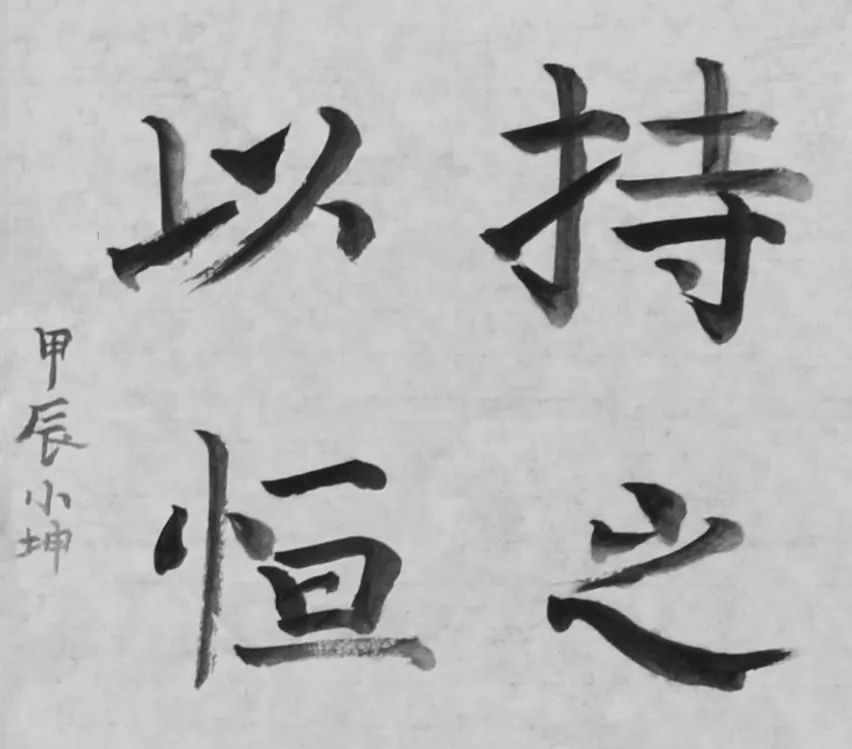 持之
以恒
甲辰小坤